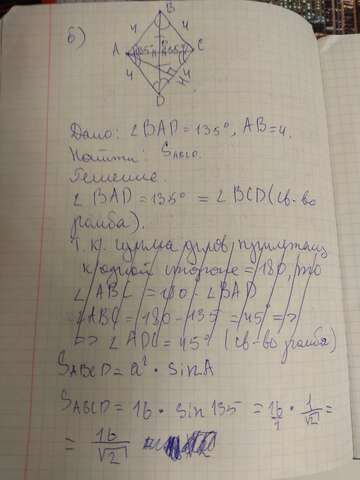 б)
B
4 4
A 135° 135° C
4 4
H
D
Дано: ∠BAD = 135°, AB = 4.
Найти: S ABCD.
Решение.
∠BAD = 135° = ∠BCD (св-во
ромба).
Т.к. сумма углов прилежащ
к одной стороне = 180, то
∠ABC = 180 - ∠BAD
∠ABC = 180 - 135 = 45° =>
=> ∠ADC = 45° (св-во ромба)
S ABCD = a² · sin A
S ABCD = 16 · sin 135 = 16/1 · 1/√2 =
= 16/√2